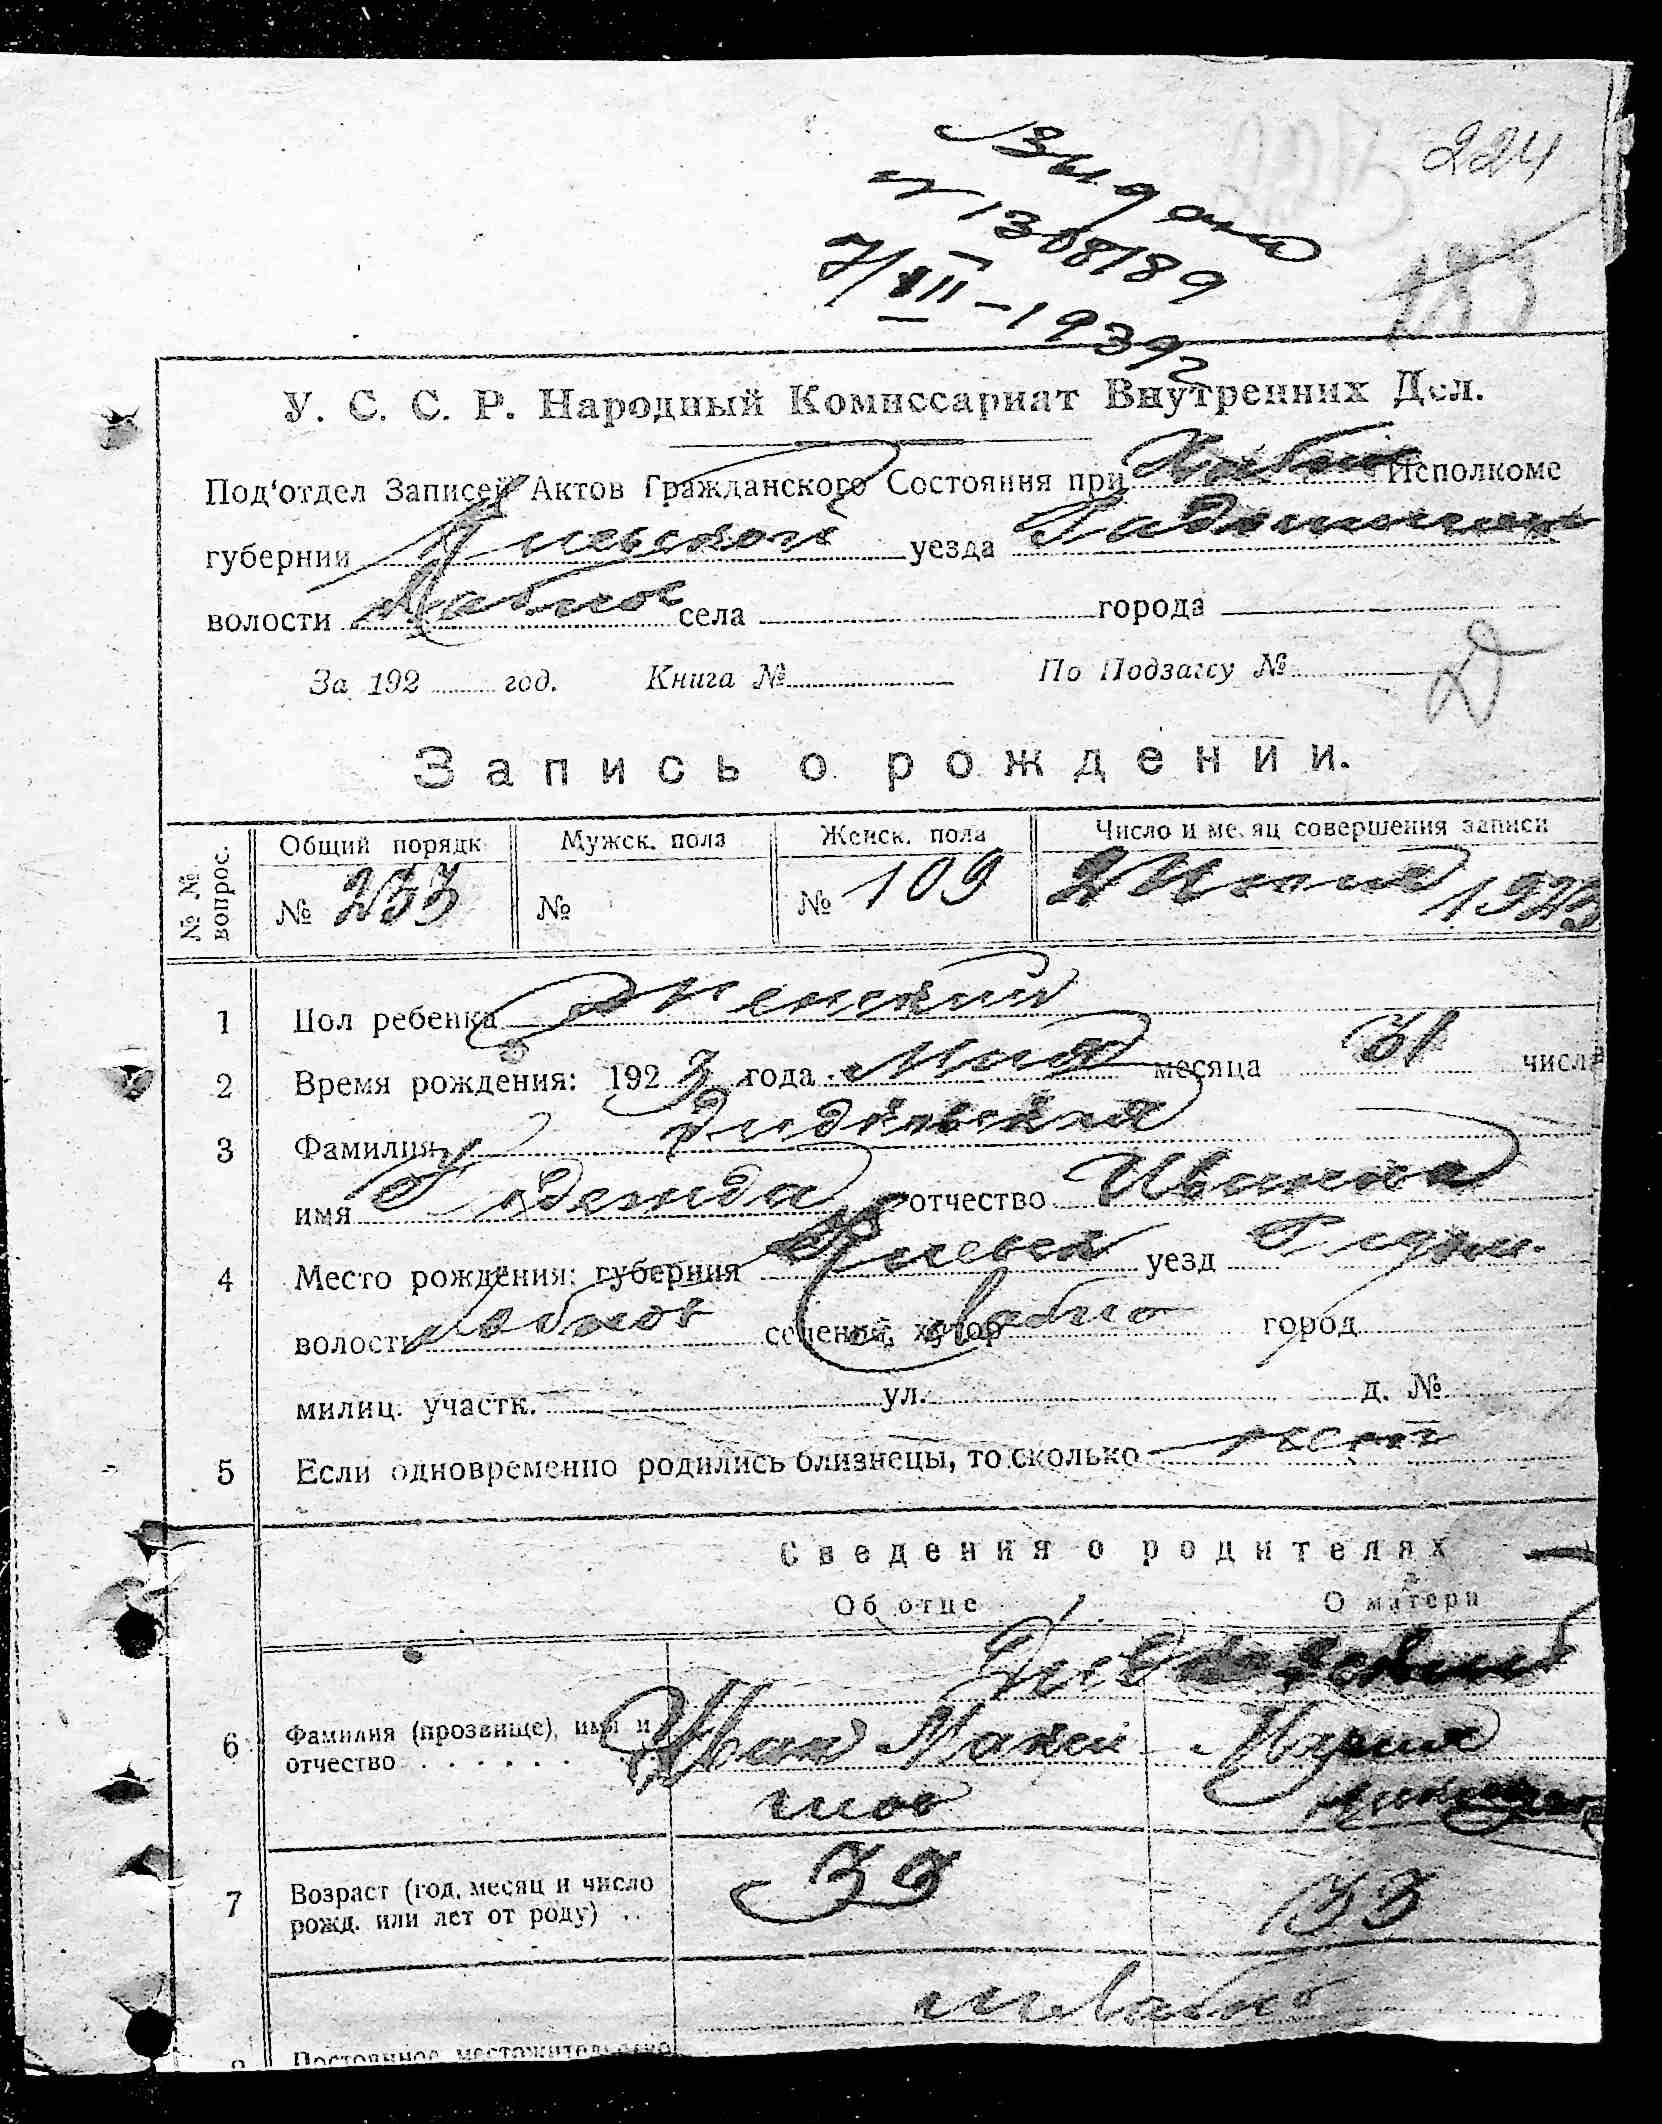 224
Выдано
№ 1308189
7/VII - 1939 г
У. С. С. Р. Народный Комиссариат Внутренних Дел.
Под‘отдел Записей Актов Гражданского Состояния при Хабно Исполкоме
губернии Киевской уезда
волости Хабное села города
За 192 год. Книга № По Подзагсу №
Запись о рождении.
№ № вопрос. Общий порядк Мужск. пола Женск. пола Число и месяц совершения записи
№ 233 № № 109 2 Июня 1923
1 Пол ребенка Женский
2 Время рождения: 1923 года Мая месяца 31 числа
3 Фамилия
имя Надежда отчество Ивановна
4 Место рождения: губерния Киевск уезд
волость Хабное селение, хутор Хабно город
милиц. участк. ул. д. №
5 Если одновременно родились близнецы, то сколько
Сведения о родителях
Об отце О матери
6 Фамилия (прозвище), имя и Иван Мария
отчество
7 Возраст (год, месяц и число 33
рожд. или лет от роду)
м Хабно
8 Постоянное местожительство